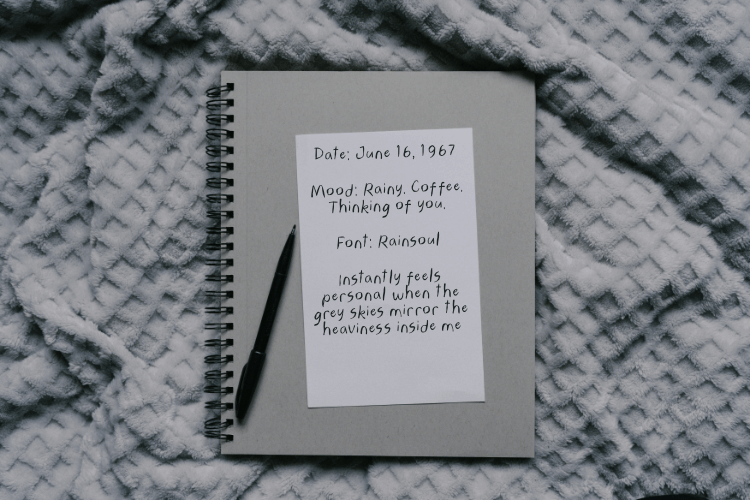 Date: June 16, 1967
Mood: Rainy. Coffee.
Thinking of you.
Font: Rainsoul
Instantly feels
personal when the
grey skies mirror the
heaviness inside me